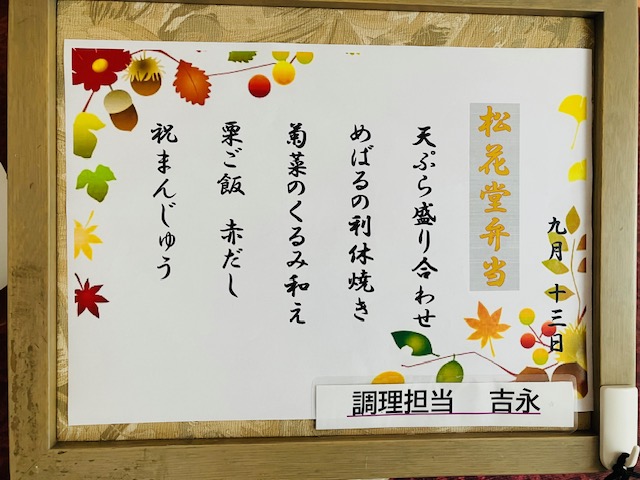 九月 十三日
松花堂弁当
天ぷら盛り合わせ
めばるの利休焼き
菊菜のくるみ和え
栗ご飯 赤だし
祝まんじゅう
調理担当 吉永